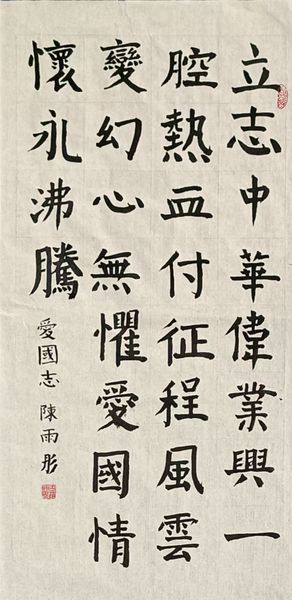 立志中華偉業興一
腔熱血付征程風雲
變幻心無懼愛國情
懷永沸騰
愛國志 陳雨彤